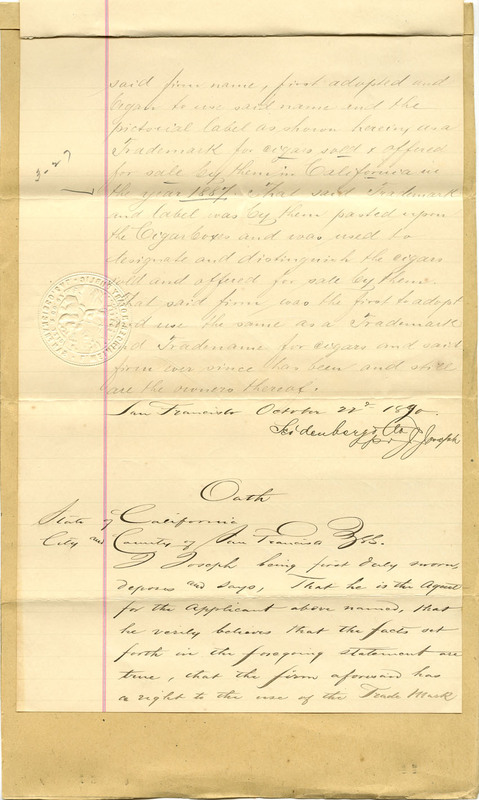 said firm name, first adopted and
began to use said name and the
pictorial label as shown herein as a
Trademark for cigars sold & offered
for sale by them in California in
the year 1887. That said Trademark
and label was by them pasted upon
the Cigar boxes and was used to
designate and distinguish the cigars
sold and offered for sale by them.
That said firm was the first to adopt
and use the same as a Trademark
and Tradename for cigars and said
firm ever since has been and still
are the owners thereof.
3-27
San Francisco October 22d 1890.
Seidenberg & Co
per J. Joseph
Oath
State of California
City and County of San Francisco } ss.
J Joseph being first duly sworn,
deposes and says, That he is the Agent
for the Applicant above named, that
he verily believes that the facts set
forth in the foregoing statement are
true, that the firm aforesaid has
a right to the use of the Trade Mark